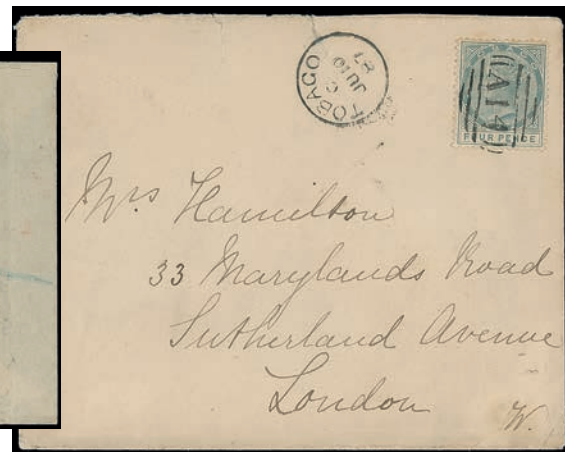 TOBAGO
C
JU 10
87
A14
FOUR PENCE
Mrs Hamilton
33 Marylands Road
Sutherland Avenue
London
W.